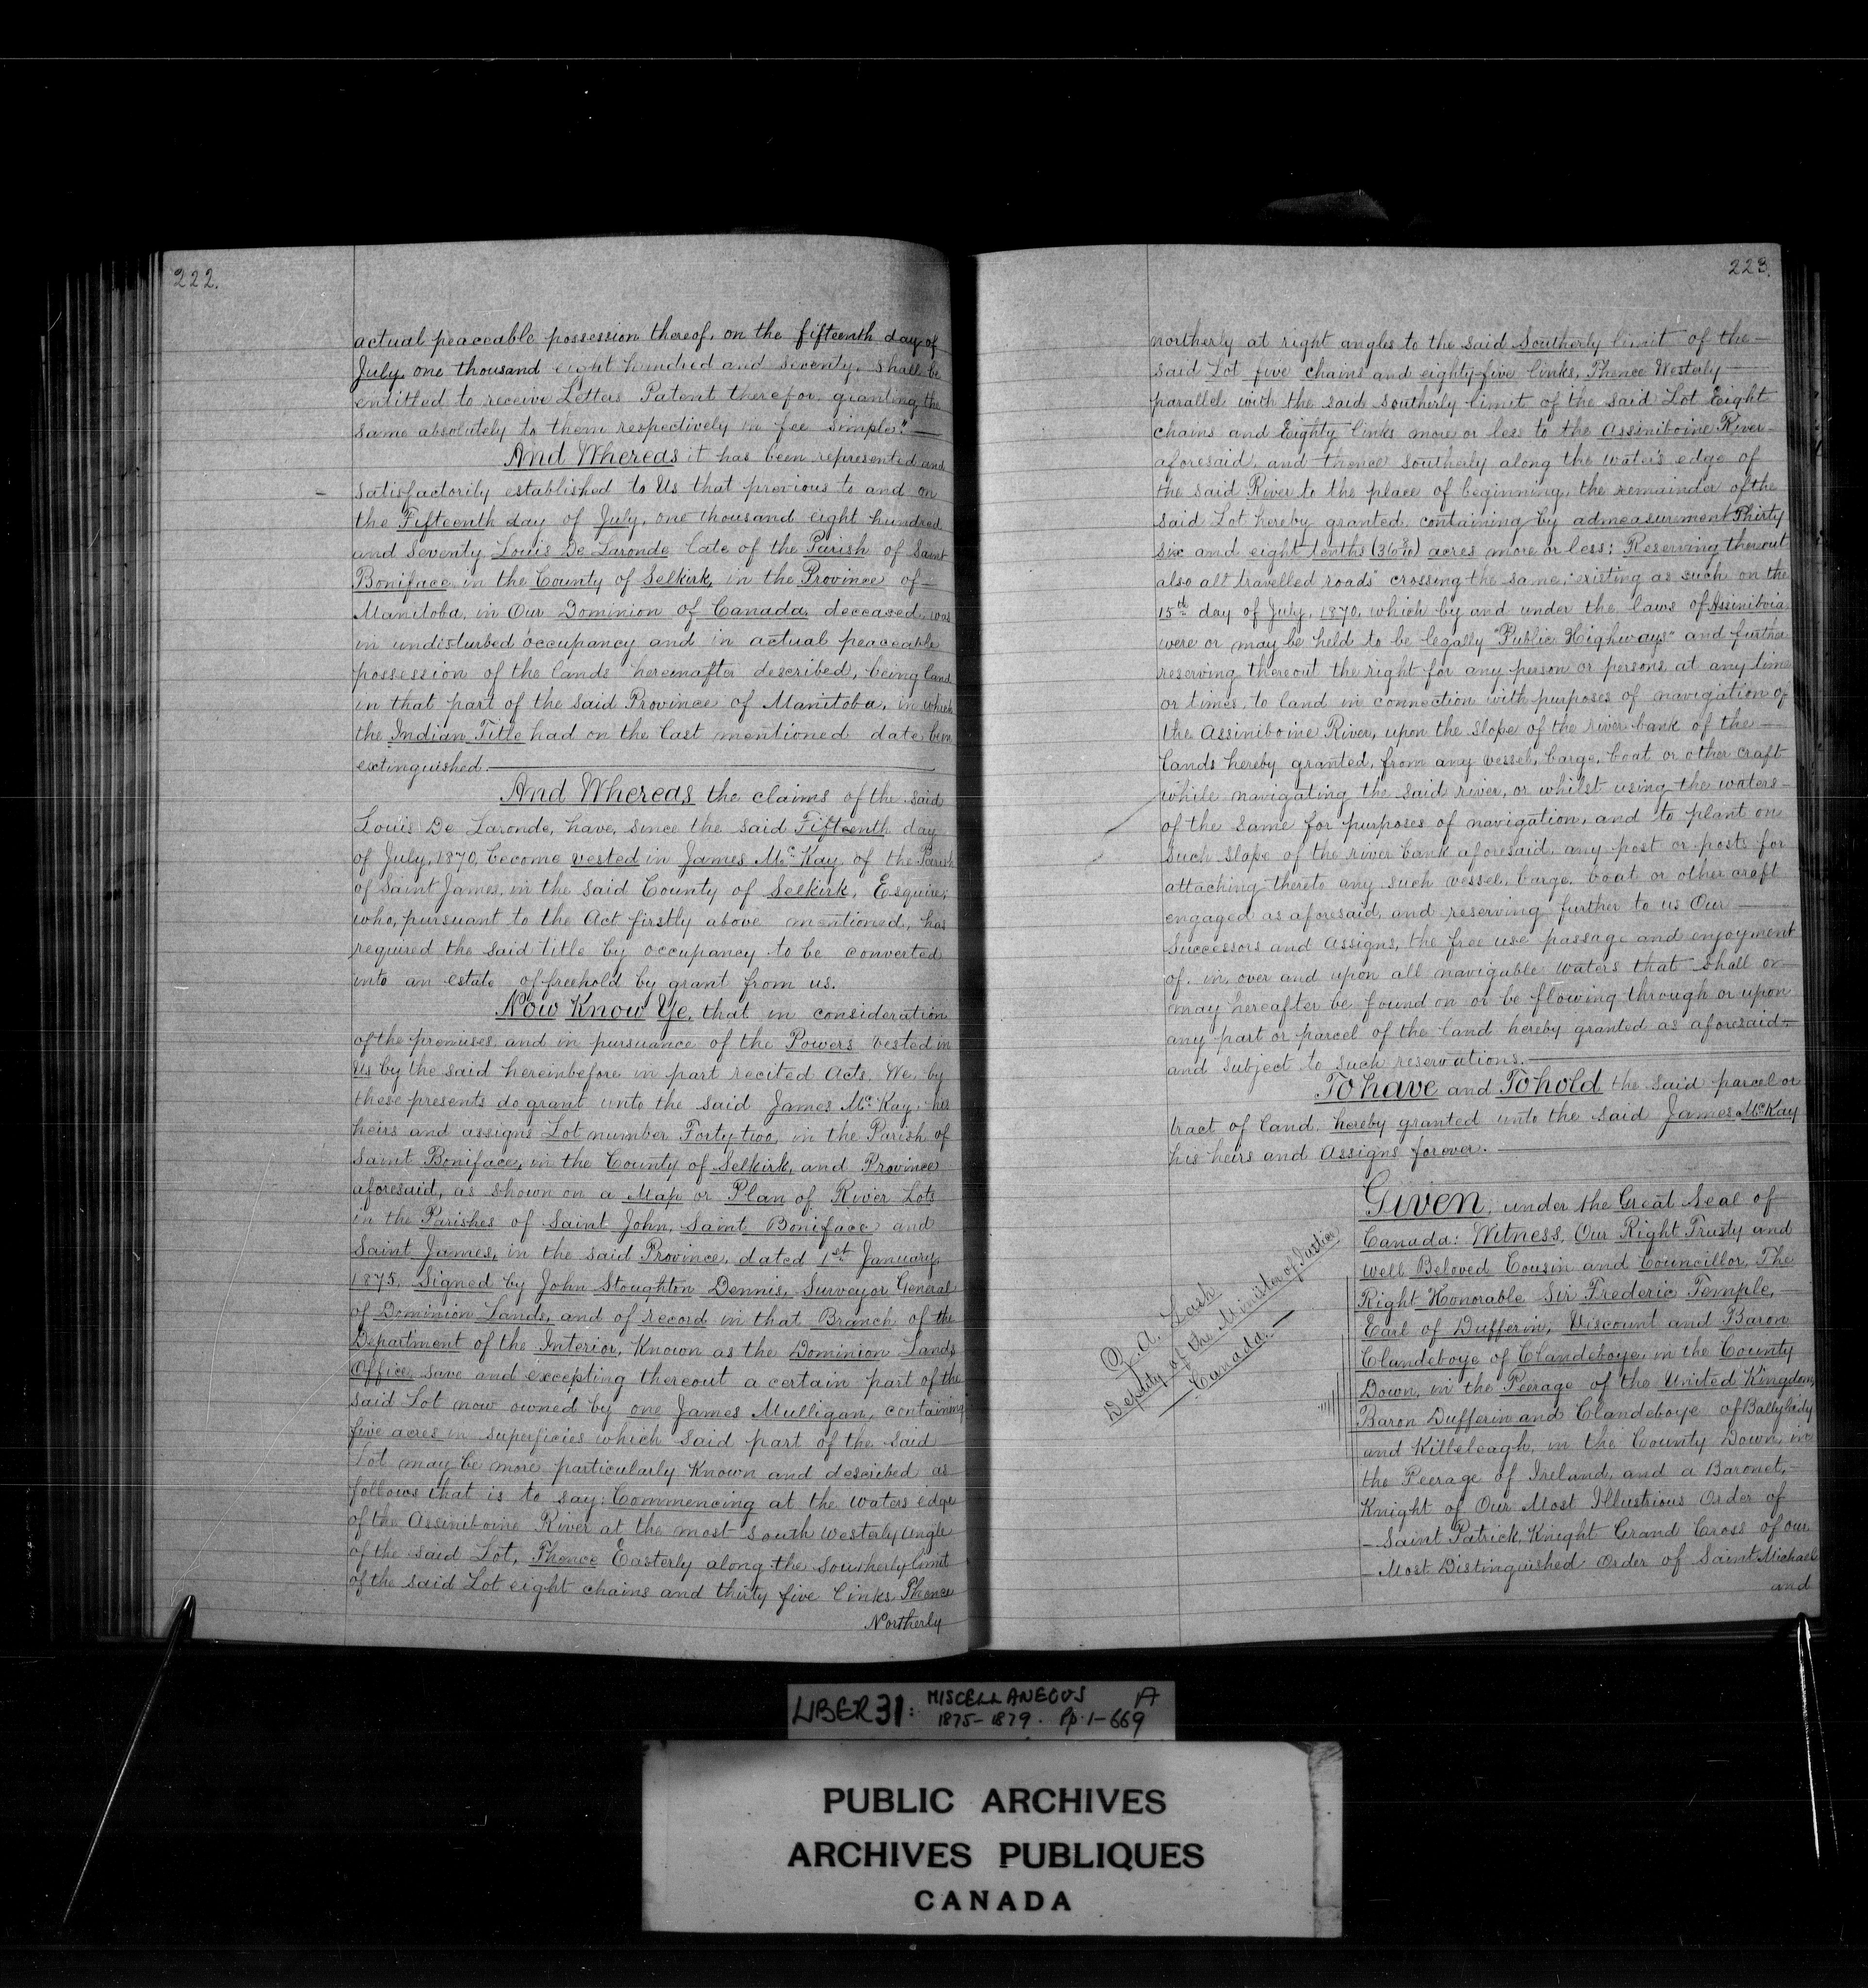 222.
actual peaceable possession thereof, on the fifteenth day of
July, one thousand eight hundred and seventy, shall be
entitled to receive Letters Patent therefor granting the
same absolutely to them respectively in fee simple."
And Whereas it has been represented and
satisfactorily established to Us that previous to and on
the Fifteenth day of July, one thousand eight hundred
and seventy Louis De Laronde late of the Parish of Saint
Boniface in the County of Selkirk, in the Province of
Manitoba, in Our Dominion of Canada, deceased, was
in undisturbed occupancy and in actual peaceable
possession of the lands hereinafter described, being land
in that part of the said Province of Manitoba, in which
the Indian Title had on the last mentioned date been
extinguished.
And Whereas the claims of the said
Louis De Laronde, have, since the said Fifteenth day
of July, 1870, become vested in James McKay of the Parish
of Saint James, in the said County of Selkirk, Esquire,
who, pursuant to the Act firstly above mentioned, has
required the said title by occupancy to be converted
into an estate of freehold by grant from us.
Now Know Ye, that in consideration
of the premises and in pursuance of the Powers vested in
Us by the said hereinbefore in part recited Acts. We by
these presents do grant unto the said James McKay, his
heirs and assigns Lot number Forty-two, in the Parish of
Saint Boniface, in the County of Selkirk, and Province
aforesaid, as shown on a Map or Plan of River Lots
in the Parishes of Saint John, Saint Boniface and
Saint James, in the said Province, dated 1st January,
1875, Signed by John Stoughton Dennis, Surveyor General
of Dominion Lands, and of record in that Branch of the
Department of the Interior, Known as the Dominion Lands
Office, save and excepting thereout a certain part of the
said Lot now owned by one James Mulligan, containing
five acres in superficies which said part of the said
Lot may be more particularly known and described as
follows that is to say: Commencing at the waters edge
of the Assiniboine River at the most South Westerly angle
of the said Lot, Thence Easterly along the Southerly limit
of the said Lot eight chains and thirty five links Thence
Northerly
223.
northerly at right angles to the said Southerly limit of the
said Lot five chains and eighty-five links, Thence Westerly
parallel with the said southerly limit of the said Lot Eight
chains and Eighty links more or less to the Assiniboine River
aforesaid, and thence Southerly along the water's edge of
the said River to the place of beginning, the remainder of the
said Lot hereby granted containing by admeasurement Thirty
six and eight tenths (36 8/10) acres more or less: Reserving thereout
also all "travelled roads" crossing the same, existing as such on the
15th day of July, 1870, which by and under the laws of Assiniboia
were or may be held to be legally "Public Highways" and further
reserving thereout the right for any person or persons at any time
or times, to land in connection with purposes of navigation of
the Assiniboine River, upon the slope of the river bank of the
lands hereby granted, from any vessel, barge, boat or other craft
while navigating the said river, or whilst using the waters
of the same for purposes of navigation, and to plant on
such slope of the river bank aforesaid, any post or posts for
attaching thereto any such vessel, barge, boat or other craft
engaged as aforesaid, and reserving further to us Our
Successors and Assigns, the free use passage and enjoyment
of, in, over and upon all navigable waters that shall or
may hereafter be found on or be flowing through or upon
any part or parcel of the land hereby granted as aforesaid
and subject to such reservations.
To have and To hold the said parcel or
tract of land hereby granted unto the said James McKay
his heirs and Assigns forever.
Given, under the Great Seal of
Canada: Witness, Our Right Trusty and
Well Beloved Cousin and Councillor, The
Right Honorable Sir Frederic Temple,
Earl of Dufferin, Viscount and Baron
Clandeboye of Clandeboye, in the County
Down, in the Peerage of the United Kingdom,
Baron Dufferin and Clandeboye of Ballyleidy
and Killeleagh, in the County Down, in
the Peerage of Ireland, and a Baronet,
Knight of Our Most Illustrious Order of
Saint Patrick, Knight Grand Cross of our
Most Distinguished Order of Saint Michael
and
Z. A. Lash
Deputy of the Minister of Justice
Canada.
LIBER 31: MISCELLANEOUS A
1875-1879. Pp. 1-669
PUBLIC ARCHIVES
ARCHIVES PUBLIQUES
CANADA